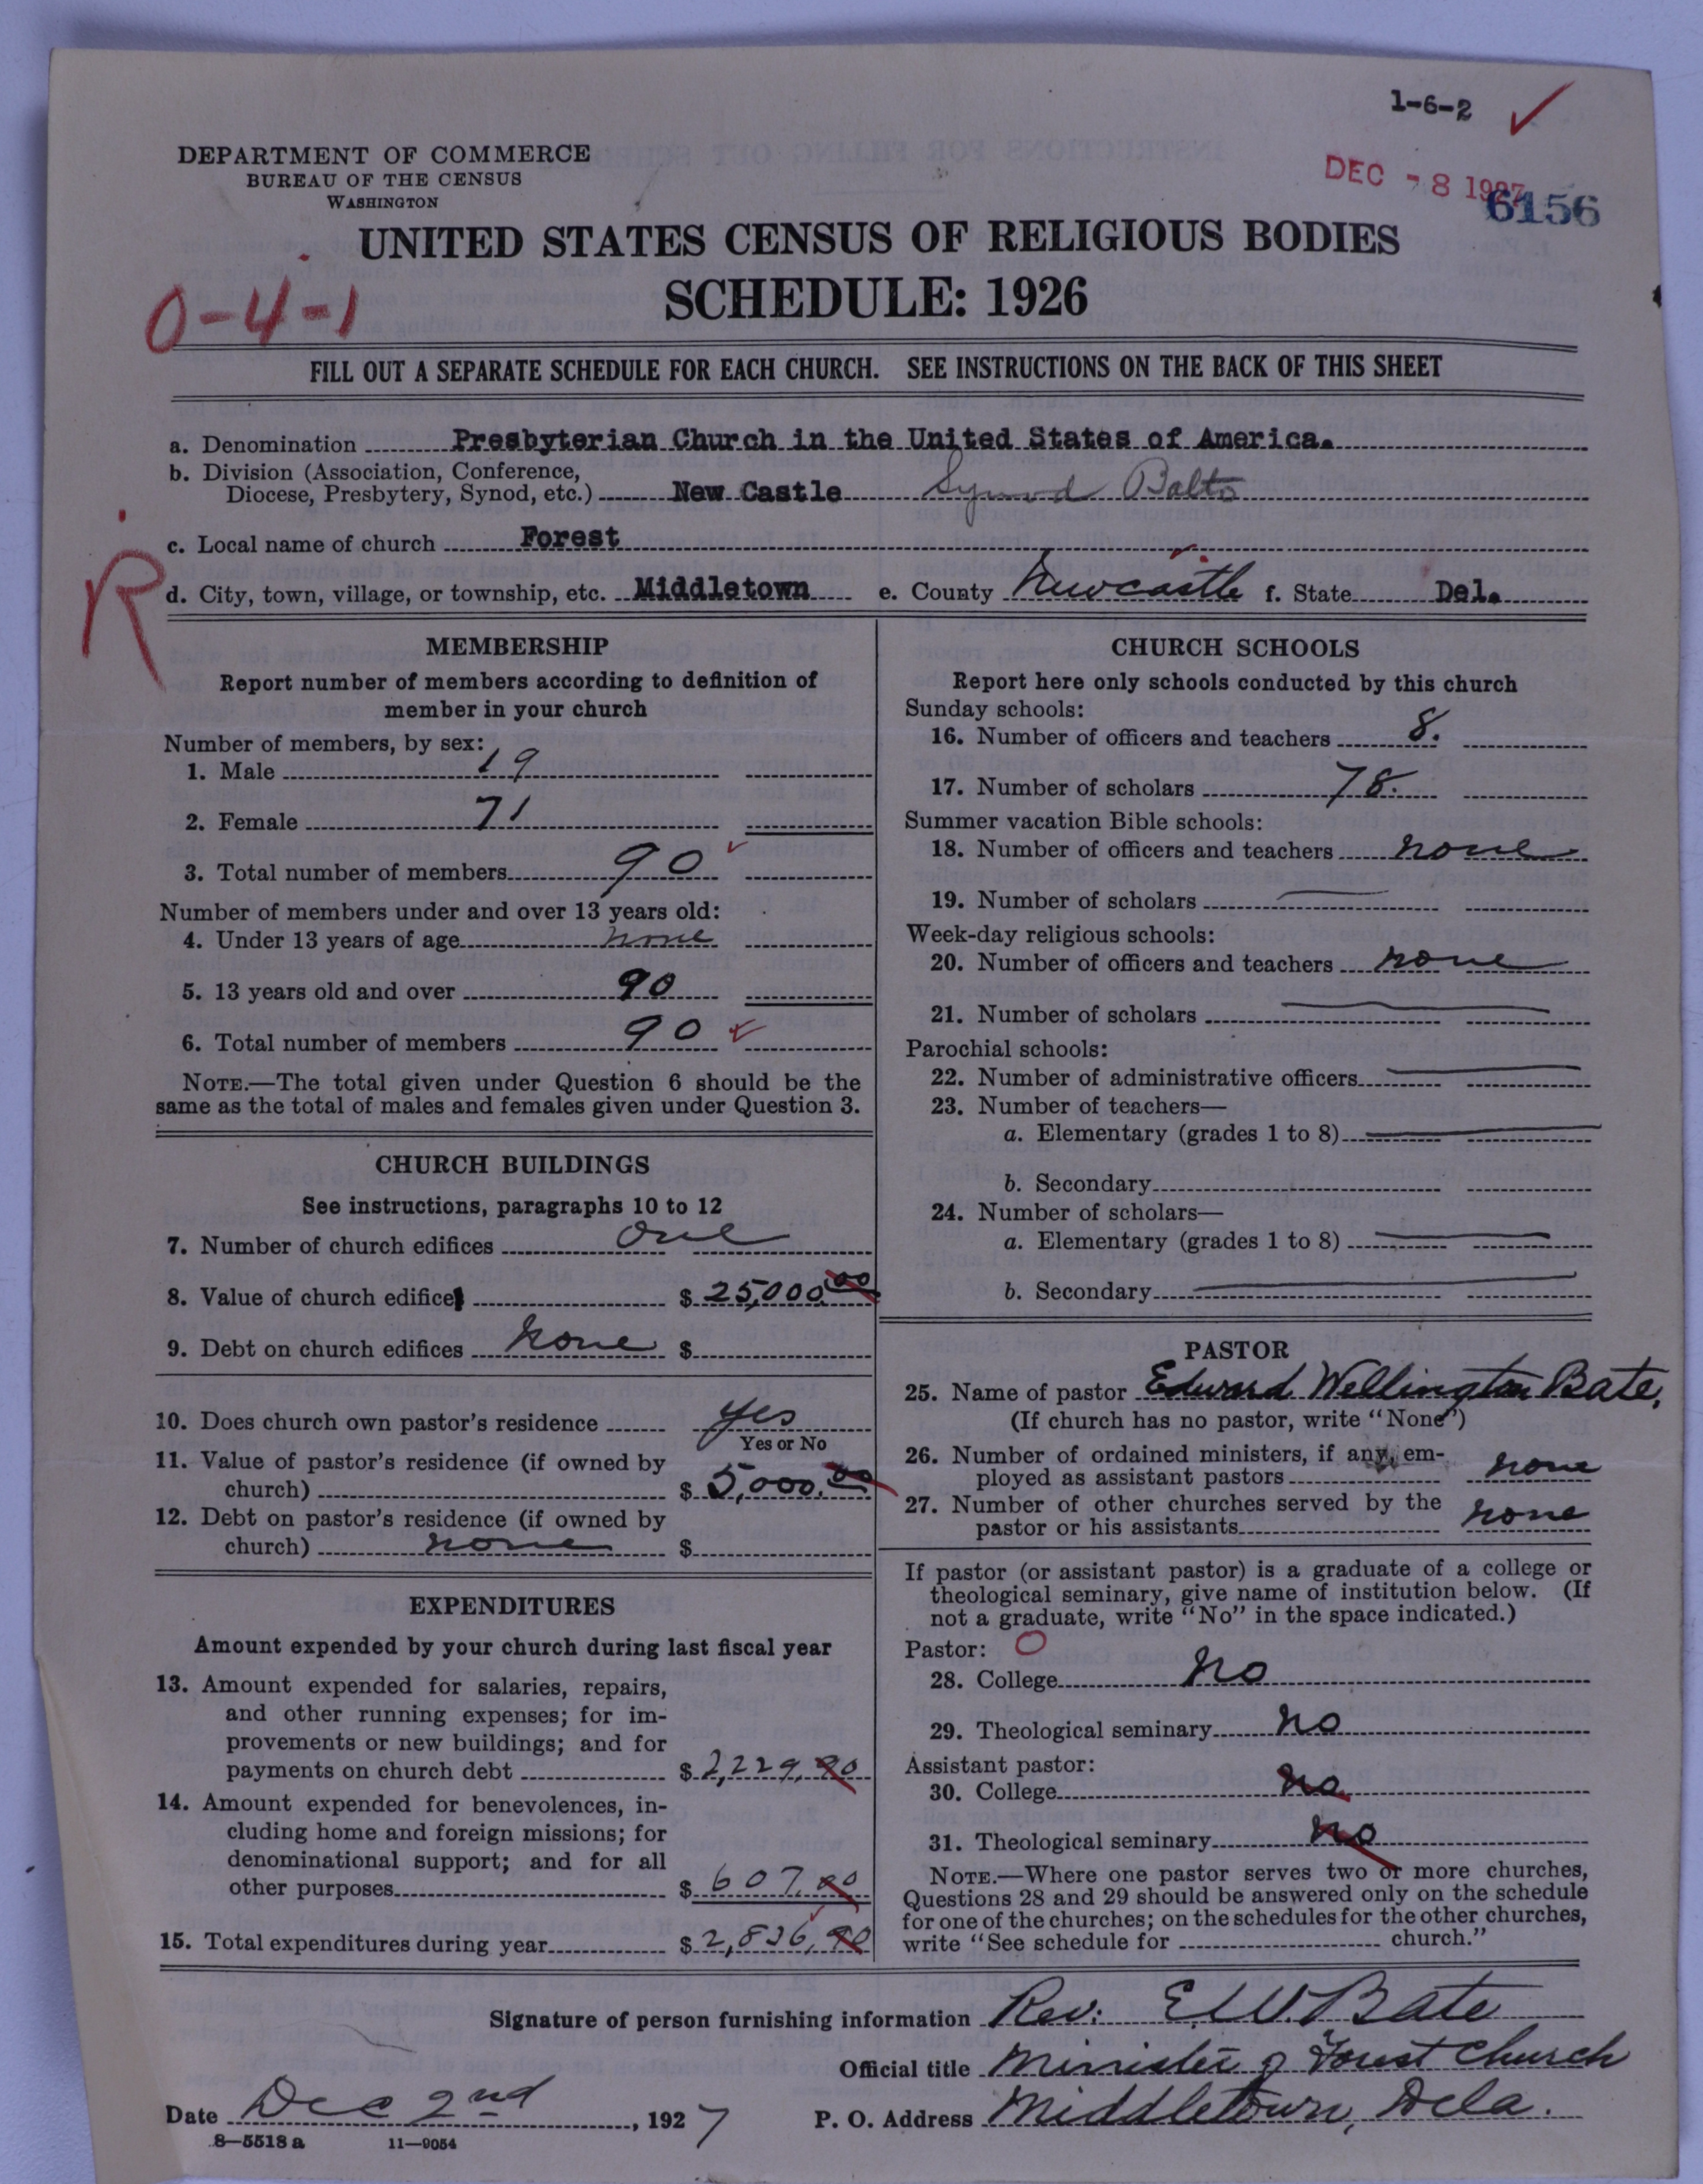 1-6-2
DEPARTMENT OF COMMERCE
BUREAU OF THE CENSUS
WASHINGTON
DEC -8 1927
6156
UNITED STATES CENSUS OF RELIGIOUS BODIES
SCHEDULE: 1926
0-4-1
FILL OUT A SEPARATE SCHEDULE FOR EACH CHURCH. SEE INSTRUCTIONS ON THE BACK OF THIS SHEET
a. Denomination Presbyterian Church in the United States of America.
b. Division (Association, Conference,
Diocese, Presbytery, Synod, etc.) New Castle Synod Balto
c. Local name of church Forest
R
d. City, town, village, or township, etc. Middletown e. County Newcastle f. State Del.
MEMBERSHIP
Report number of members according to definition of
member in your church
Number of members, by sex:
1. Male 19
2. Female 71
3. Total number of members 90
Number of members under and over 13 years old:
4. Under 13 years of age none
5. 13 years old and over 90
6. Total number of members 90
NOTE.—The total given under Question 6 should be the
same as the total of males and females given under Question 3.
CHURCH BUILDINGS
See instructions, paragraphs 10 to 12
7. Number of church edifices one
8. Value of church edifice $ 25,000.00
9. Debt on church edifices none $
10. Does church own pastor's residence yes
Yes or No
11. Value of pastor's residence (if owned by
church) $ 5,000.00
12. Debt on pastor's residence (if owned by
church) none $
EXPENDITURES
Amount expended by your church during last fiscal year
13. Amount expended for salaries, repairs,
and other running expenses; for im-
provements or new buildings; and for
payments on church debt $ 2,229.90
14. Amount expended for benevolences, in-
cluding home and foreign missions; for
denominational support; and for all
other purposes $ 607.00
15. Total expenditures during year $ 2,836.90
CHURCH SCHOOLS
Report here only schools conducted by this church
Sunday schools:
16. Number of officers and teachers 8.
17. Number of scholars 78.
Summer vacation Bible schools:
18. Number of officers and teachers none
19. Number of scholars
Week-day religious schools:
20. Number of officers and teachers none
21. Number of scholars
Parochial schools:
22. Number of administrative officers
23. Number of teachers—
a. Elementary (grades 1 to 8)
b. Secondary
24. Number of scholars—
a. Elementary (grades 1 to 8)
b. Secondary
PASTOR
25. Name of pastor Edward Wellington Bate,
(If church has no pastor, write "None")
26. Number of ordained ministers, if any, em-
ployed as assistant pastors none
27. Number of other churches served by the
pastor or his assistants none
If pastor (or assistant pastor) is a graduate of a college or
theological seminary, give name of institution below. (If
not a graduate, write "No" in the space indicated.)
Pastor: O
28. College No
29. Theological seminary No
Assistant pastor:
30. College No
31. Theological seminary No
NOTE.—Where one pastor serves two or more churches,
Questions 28 and 29 should be answered only on the schedule
for one of the churches; on the schedules for the other churches,
write "See schedule for church."
Signature of person furnishing information Rev. E.W. Bate
Official title Minister of Forest Church
Date Dec 2nd, 1927 P. O. Address Middletown, Dela.
8—5518 a 11—9054